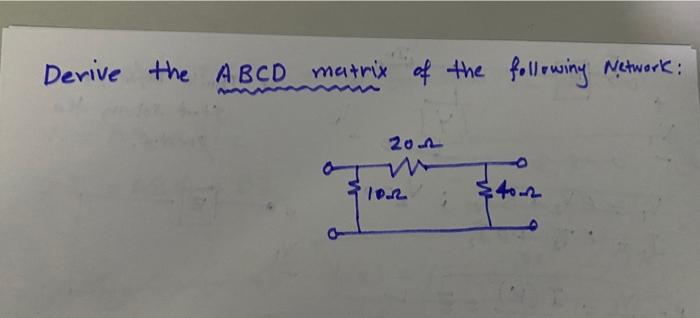 Derive the ABCD matrix of the following Network:
20Ω
10Ω
40Ω